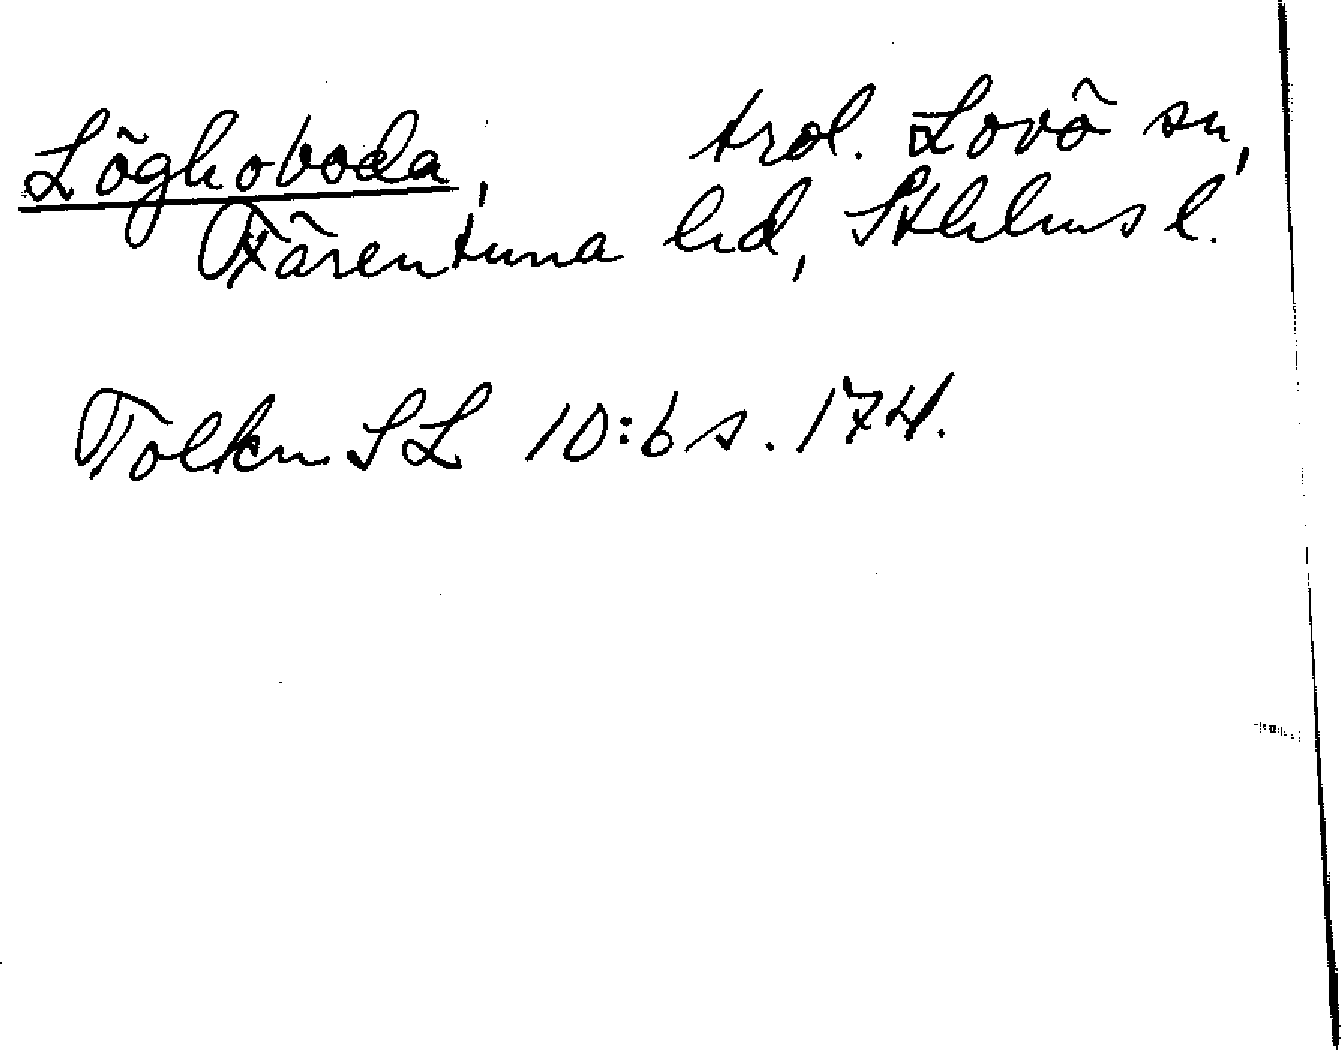 Löghoboda, trol. Lovö sn,
Färentuna hd, Sthlms l.
TolknSL 10:6 s. 174.